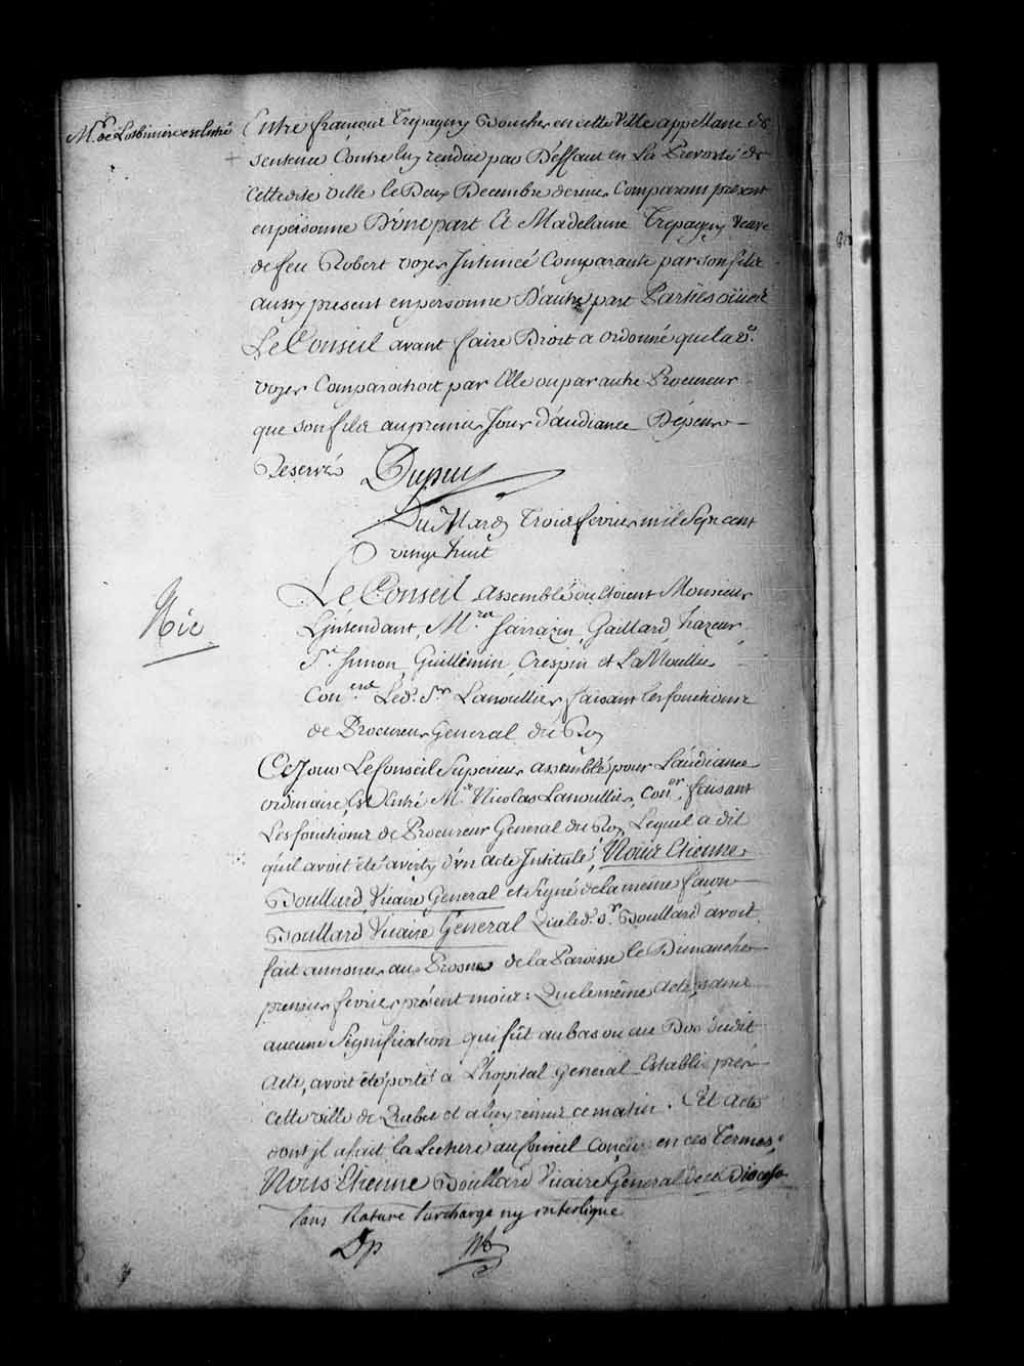 Mr. de Lotbiniere entré
Entre francois Trepagny Boucher en cette Ville appellant de
sentence Contre luy rendue par Deffaut en La Prevosté de
cette dite ville le Deux Decembre dernier Comparant present
en personne D'une part Et Madelaine Trepagny veuve
de feu Robert voyer Intimée Comparante par son fils
aussy present en personne D'autre part Parties oüies
Le Conseil avant faire Droit a ordonné que la ve.
voyer Comparoitroit par Elle ou par autre Procureur
que son fils au premier Jour d'audiance Dépens
Reservés Dupuy
Du Mardy Trois fevrier mil Sept cent
vingt huit
Le Conseil assemblé ou Etoient Monsieur
L'jntendant, Mrs. Sarrazin, Gaillard, hazeur,
St. Simon, Guillemin, Crespin et LaNoullier
Coners. Led. Sr. Lanoullier faisant les fonctions
de Procureur General du Roy
Nic
Ce Jour Le Conseil Superieur assemblé pour L'audiance
ordinaire, Est Entré Mr. Nicolas Lanoullier, Coner. faisant
Les fonctions de Procureur General du Roy, Lequel a dit
qu'il avoit été averty d'vn acte Jntitulé, Nous Etienne
Boullard, Vicaire General et Signé de la même façon
Boullard Vicaire Général Que led. Sr. Boullard avoit
fait annoncer au Prosne de la Paroisse le Dimanche
premier fevrier présent mois: Que le même acte, sans
aucune Signification qui fût au bas ou au Dos dudit
Acte, avoit été porté à L'hopital General Establi près
cette ville de Quebec et a luy remis ce matin. Et Acte
dont jl a fait la Lecture au Conseil Conçu en ces Termes,
Nous Etienne Boullard Vicaire General de ce Diocese
Sans Rature Surcharge ny interligne
Dp